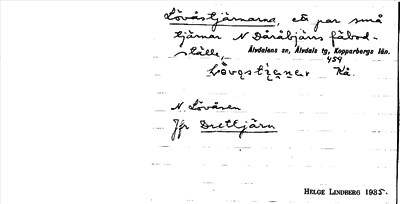 Lövåstjärnarna, ett par små
tjärnar N Dåråbjärs fäbod-
ställe.
Älvdalens sn, Älvdals tg, Kopparbergs län.
459
Kå.
N. Lövåsen
Jfr Drettjärn
HELGE LINDBERG 1935.